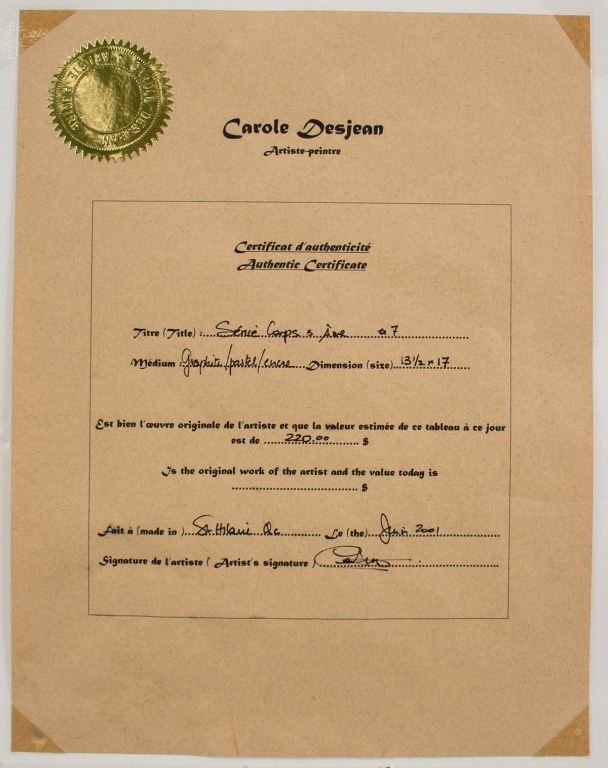 Carole Desjean
Artiste-peintre
Certificat d'authenticité
Authentic Certificate
Titre (Title) : Série Corps & Âme #7
Médium : Graphite/pastel/encre Dimension (size) 13 1/2 x 17
Est bien l'œuvre originale de l'artiste et que la valeur estimée de ce tableau à ce jour
est de 220.00 $
Is the original work of the artist and the value today is
$
Fait à (made in) St-Hilaire Qc Le (the) Juin 2001
Signature de l'artiste ( Artist's signature )